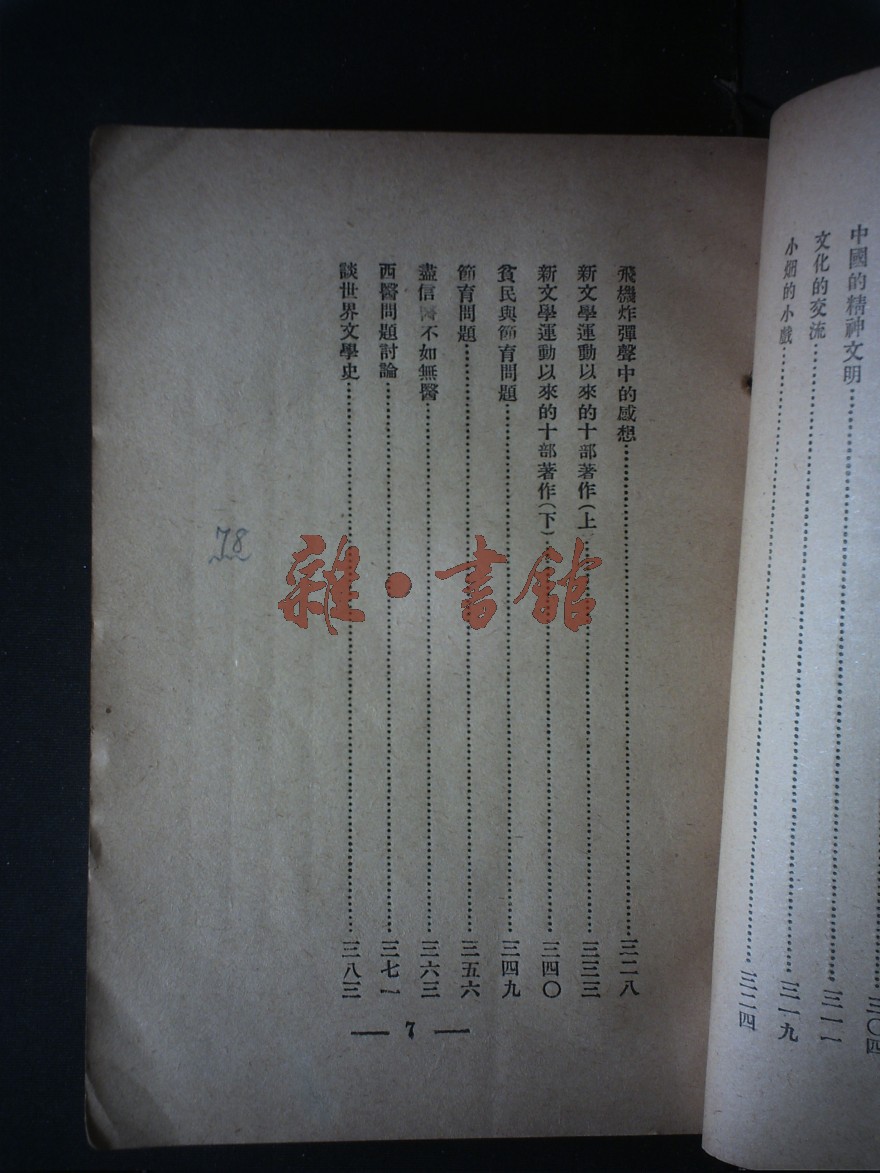 三〇四
中國的精神文明……三一一
文化的交流……三一九
小烟的小戲……三二四
飛機炸彈聲中的感想……三二八
新文學運動以來的十部著作(上……三三三
新文學運動以來的十部著作(下)……三四〇
貧民與節育問題……三四九
節育問題……三五六
盡信醫不如無醫……三六三
西醫問題討論……三七一
談世界文學史……三八三
— 7 —
78
雜·書館